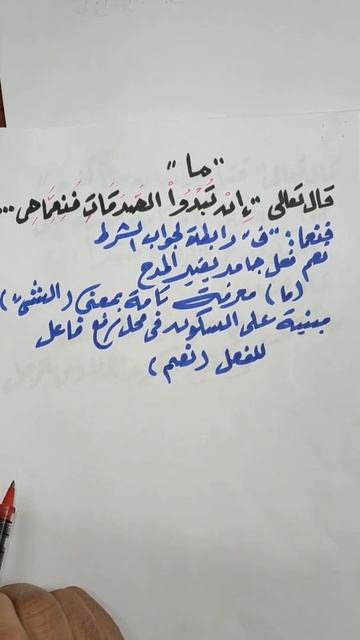 "ما"
قال تعالى "إِنْ تُبْدُواْ الصَدَقَاتِ فَنِعِمَّا هِى ...
فنعما: "فَ" رابطة لجواب الشرط
نعم فعل جامد يفيد المدح
(ما) معرفة تامة بمعنى (الشئ)
مبنية على السكون فى محل رفع فاعل
للفعل (نعم)